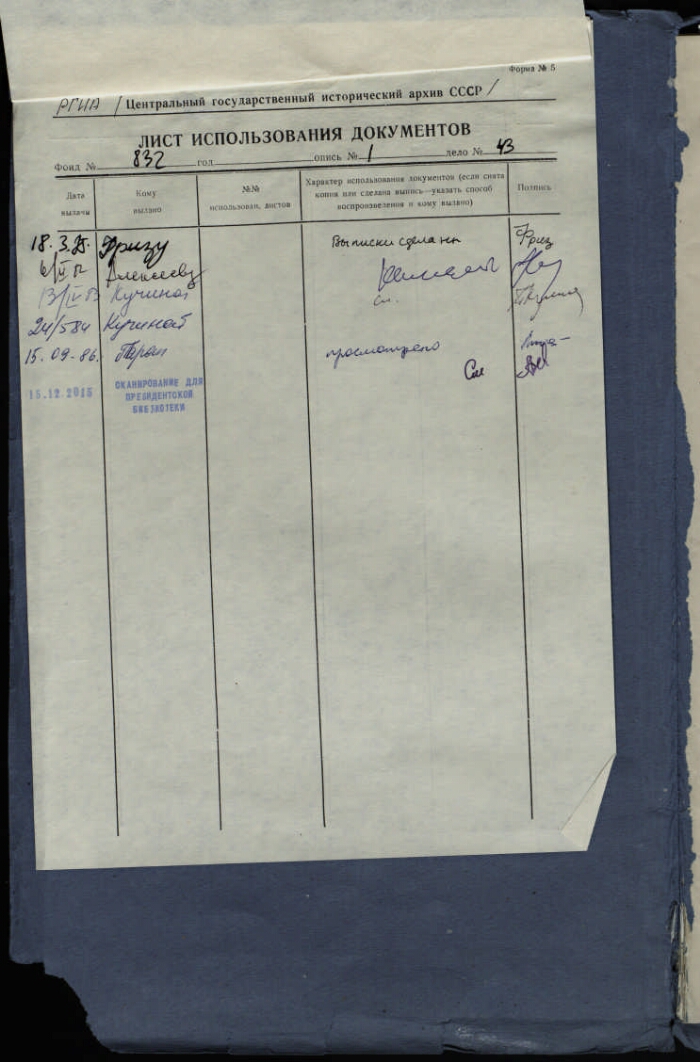 Форма № 5
РГИА / Центральный государственный исторический архив СССР /
ЛИСТ ИСПОЛЬЗОВАНИЯ ДОКУМЕНТОВ
Фонд № 832 год опись № 1 дело № 43
Дата выдачи
Кому выдано
№№ использован. листов
Характер использования документов (если снята копия или сделана выпись—указать способ воспроизведения и кому выдано)
Подпись
18. 3. Фризу Выписки сделаны Фриз
6/IV Алексееву
13/IV 83 Кучиной См.
24/584 Кучиной
15. 09. 86. просмотрено
См
15.12.2015 СКАНИРОВАНИЕ ДЛЯ
ПРЕЗИДЕНТСКОЙ
БИБЛИОТЕКИ